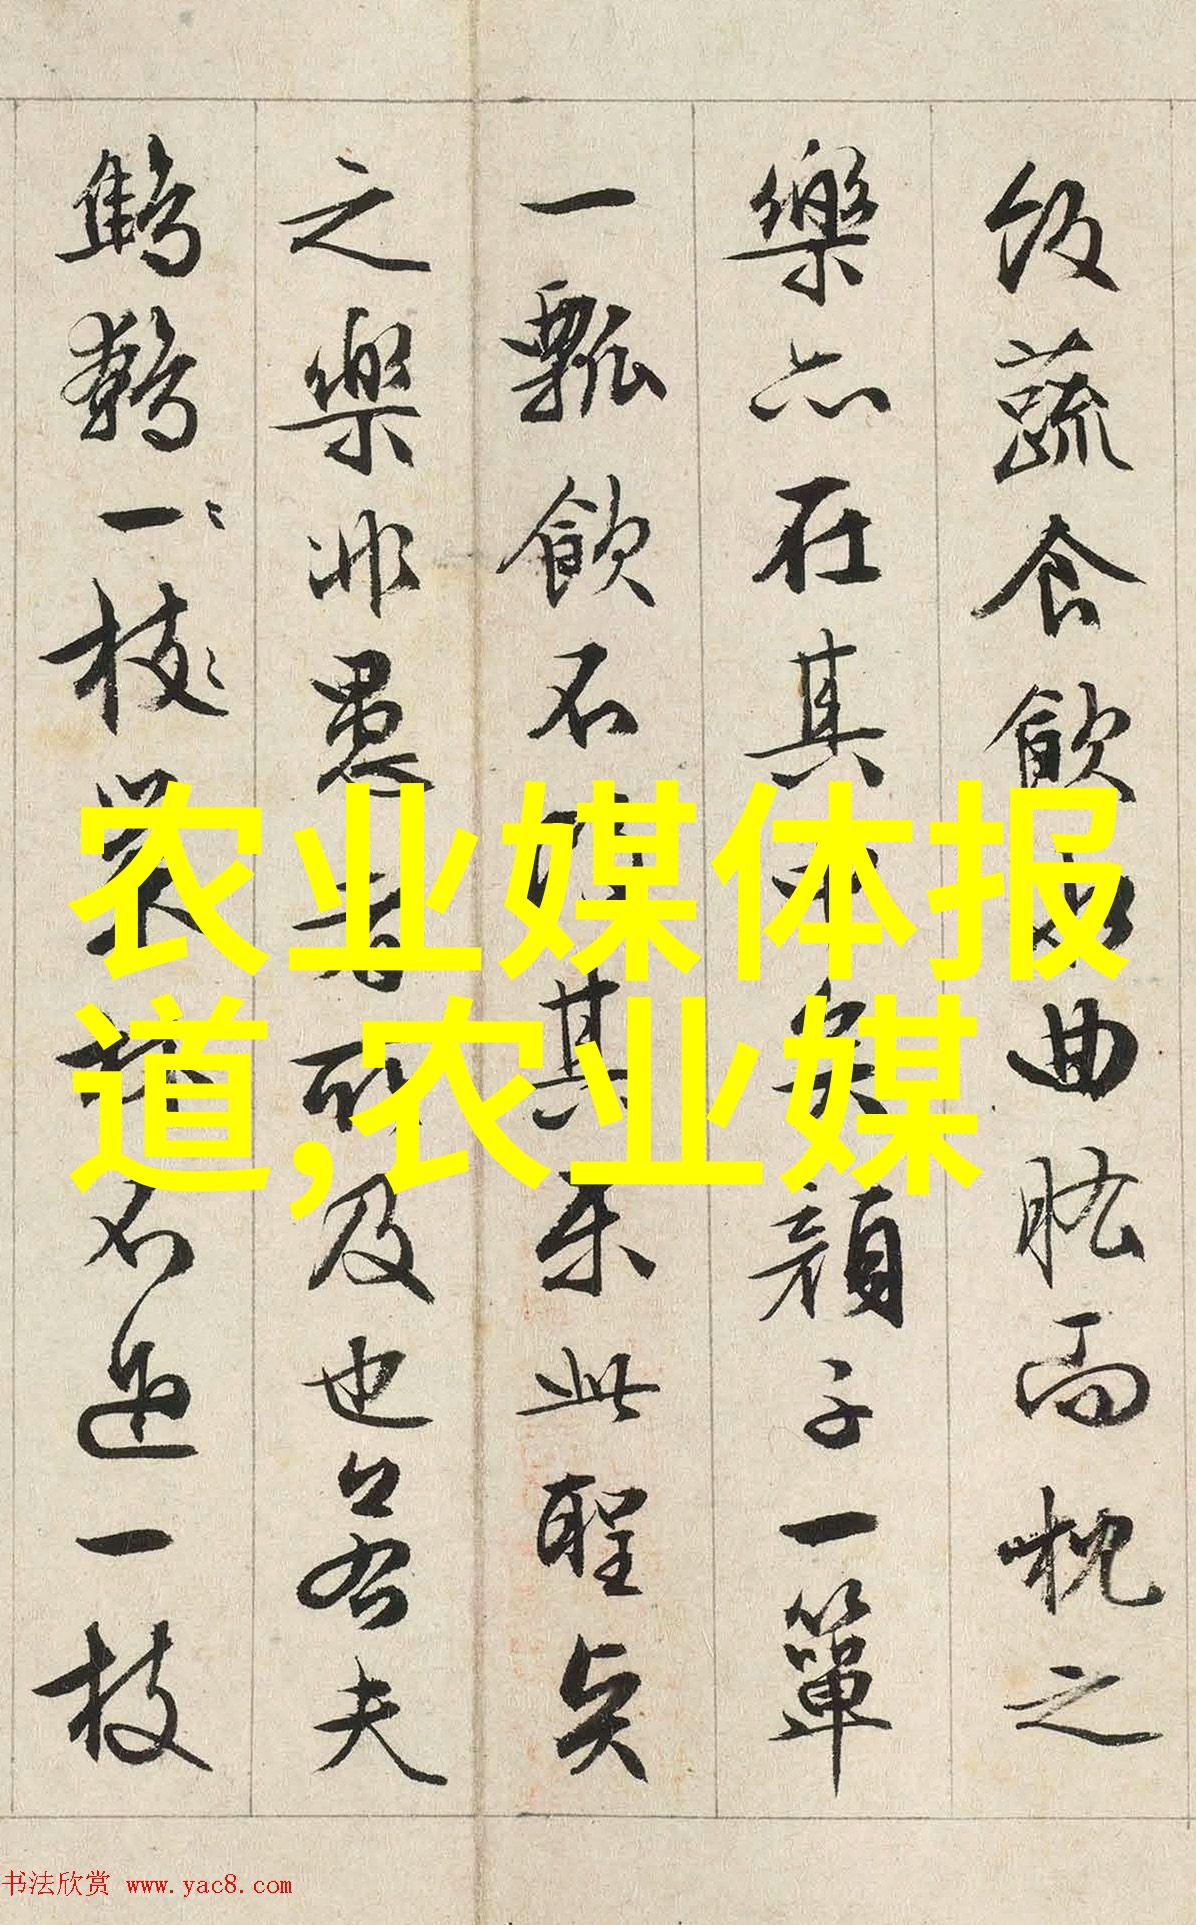 飯蔬食飲水曲肱而枕之
樂亦在其中矣顏子一簞
一瓢飲不改其樂此聖賢
之樂非愚者所及也若夫
鷦鷯一枝巢林不過一枝
农业媒体报
道,农业媒
书法欣赏 www.yac8.com